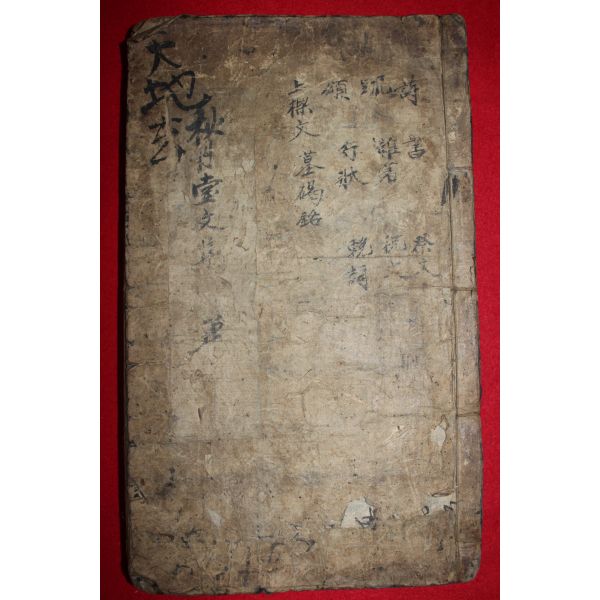 詩 書 祭文
疏 雜著 祝文
頌 行狀 輓詞
上樑文 墓碣銘
秋月堂文集
天地玄